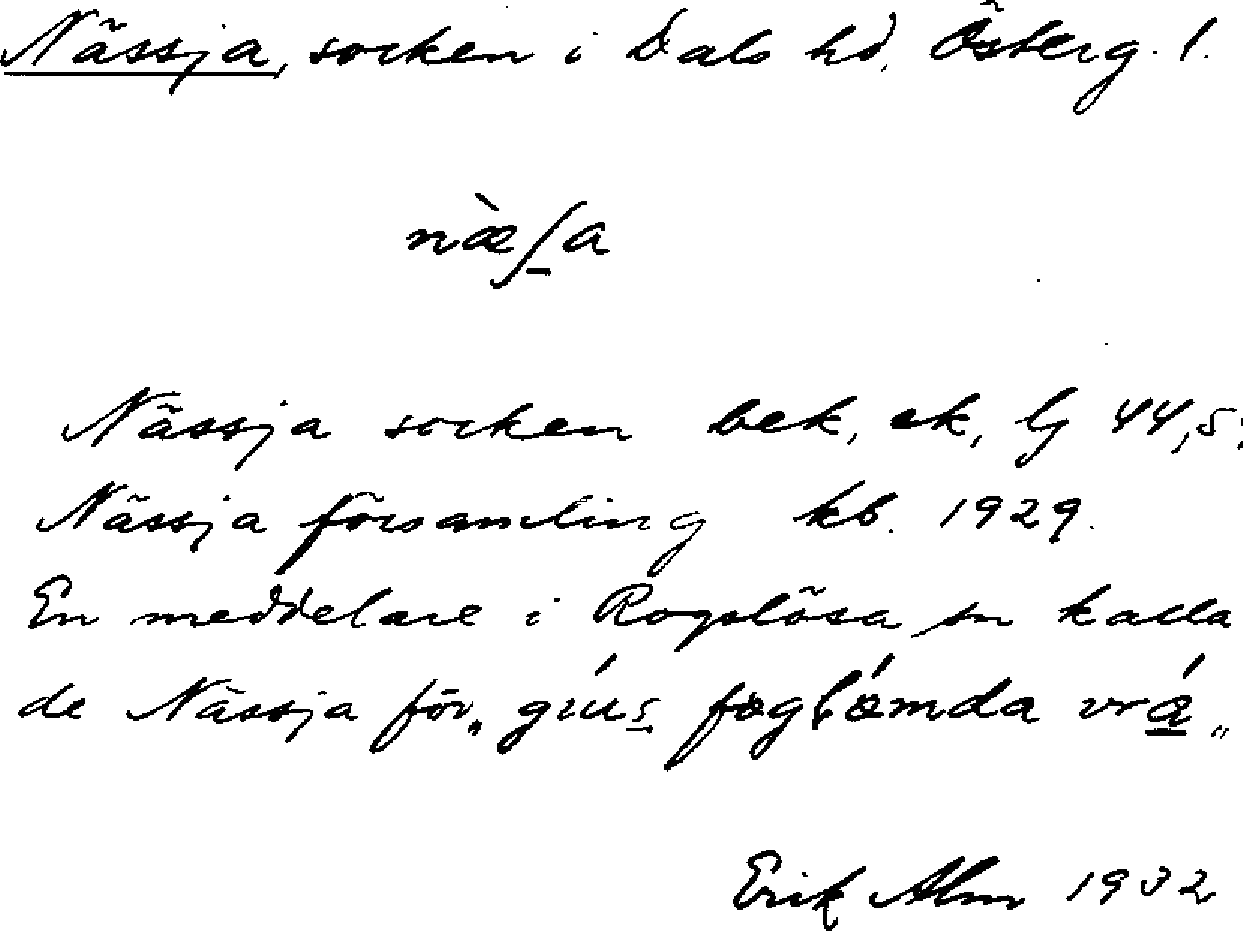 Nässja, socken i Dals hd, Österg. l.
næ̀ʃa
Nässja socken bek, ek, lj 44,5;
Nässja församling kb. 1929.
En meddelare i Rogslösa sn kalla
de Nässja för „ Erik
Erik Alm 1932